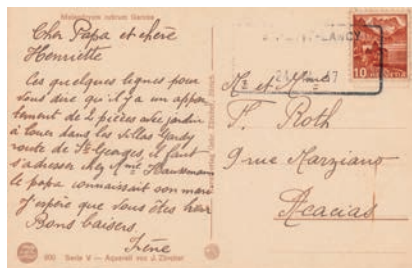 Melandryum rubrum Garcke
Cher Papa et chère
Henriette
Ces quelques lignes pour
vous dire qu'il y a un appar-
tement de 2 pièces avec jardin
à louer dans les villas
route de St Georges, il faut
s'adresser chez Mme Haussmann
le papa connaissait son mari
J'espère que vous êtes bien
Bons baisers.
Irène
900 Serie V — Aquarell von J. Zbretier
LANCY
24
47
10 HELVETIA
Mr et Mme
F. Roth
9 rue Marziano
Acacias